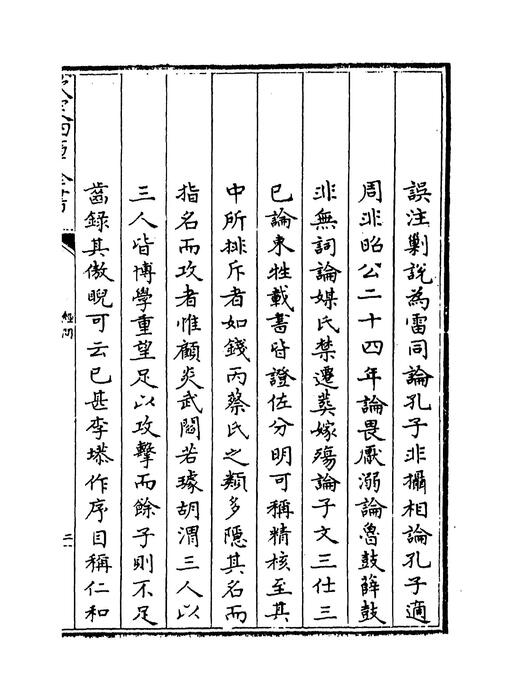 誤注勦説為雷同論孔子非攝相論孔子適
周非昭公二十四年論畏厭溺論魯鼓薛鼓
非無詞論媒氏禁遷葬嫁殤論子文三仕三
已論束牲載書皆證佐分明可稱精核至其
中所排斥者如錢丙蔡氏之類多隱其名而
指名而攻者惟顧炎武閻若璩胡渭三人以
三人皆博學重望足以攻擊而餘子則不足
齒録其傲睨可云已甚李塨作序目稱仁和
欽定四庫全書
經問
二